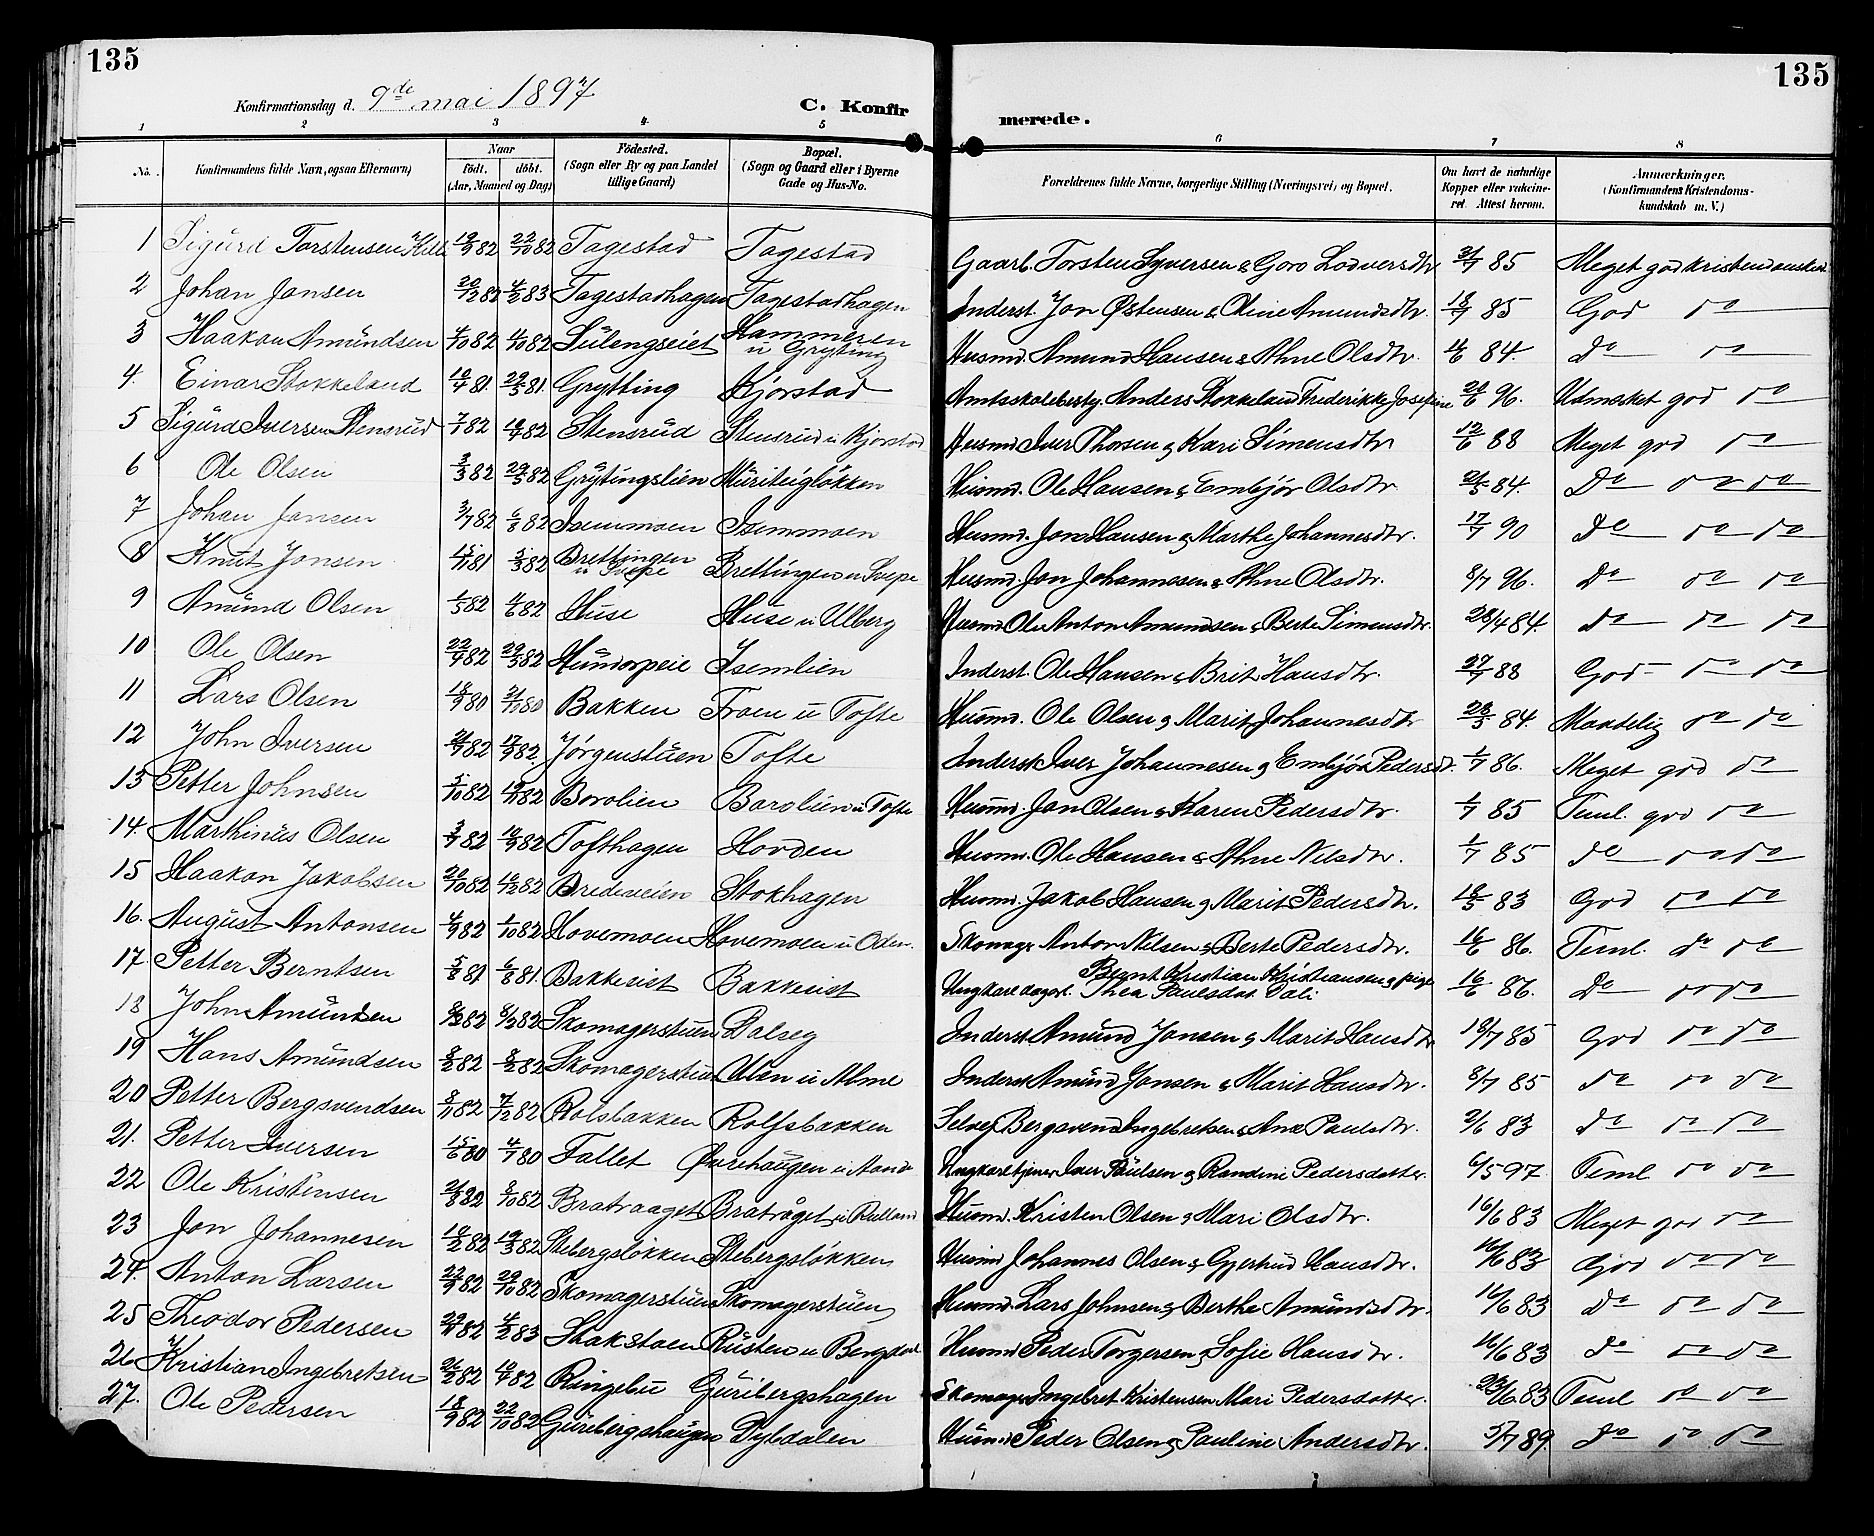 135
135
Konfirmationsdag d. 9de mai 1897
C. Konfir
merede.
1 2 3 4 5 6 7 8
No. Konfirmandens fulde Navn, ogsaa Efternavn) Naar født. døbt. (Aar, Maaned og Dag) Fødested. (Sogn eller By og paa Landet tillige Gaard) Bopæl. (Sogn og Gaard eller i Byerne Gade og Hus-No. Forældrenes fulde Navne, borgerlige Stilling (Næringsvei) og Bopæl. Om havt de naturlige Kopper eller vakcineret. Attest herom. Anmærkninger. (Konfirmandens Kristendomskundskab m. V.)
1 Sigurd Torstensen 19/9 82 22/10 82 Tagestad Tagestad Gaarb. Torsten Syversen & Goro Lodversdtr 21/7 85 Meget god kristendomsk
2 Johan Jansen 20/12 82 4/2 83 Tagestadhagen Tagestadhagen Inderst. Jon Østensen & Oline Amundsdtr. 18/7 85 God do
3 Haakon Amundsen 4/10 82 Sulengseiet Hammeren u Gryting Husmd. Amund Hansen & Ahne Olsdtr. 16/6 84. do do
4. Einar Stokkeland 10/4 81. 29/5 81. Grytting Kjorstad Amtsskolebesty. Anders Stokkeland Frederikke Josefine 20/6 96. Udmærket god do
5 Sigurd Iversen Stensrud 7/7 82 Stensrud Stensrud u Kjorstad Husmd Iver Thorsen & Kari Simensdtr 12/6 88 Meget god do
6 Ole Olsen 3/3 82 29/5 82 Grytingslien Muriteigløkken Husmd. Ole Hansen & Embjør Olsdtr. 84. Do do do
7 Johan Jansen 3/7 82 6/8 82 Isummoen Isemmoen Husmd. Jon Hansen & Marthe Johannesdtr. 17/7 90 do do do
8 Knut Jonsen 81 5/3 82 Brettingen u Svepe Brettingen u Svepe Husmd. Jon Johannesen & Ahne Olsdtr. 8/7 96. Do do do
9 Amund Olsen 1/5 82 4/6 82 Huse Huse u Ulberg Husmd Ole Anton Amundsen & Berte Simensdtr. 28/4 84. do do do
10 Ole Olsen 22/4 82 29/5 82 Hundorpeie Isemlien Inderst. Ole Hansen & Brit Hansdtr. 27/7 88 God do do
11 Lars Olsen 18/9 80 31/10 80 Bakken Froen u Tofte Husmd. Ole Olsen & Marit Johannesdtr 28/5 84. Maadelig do do
12 John Iversen 82 17/9 82. Jørgenstuen Tofte Inderst Iver Johannesen & Embjør Pedersdtr. 1/7 86. Meget god do
13 Petter Johnsen 5/10 82 19/11 82 Borolien Barolien u Tofte Husmd. Jon Olsen & Karen Pedersdtr. 1/7 85 Teml. god do
14. Marthinus Olsen 3/7 82 10/9 82 Tofthagen Horden Husmd. Ole Hansen & Ahne Nilsdtr. 1/7 85 do do do
15 Haakon Jakobsen 20/10 82 10/12 82 Bredeveien Stokhagen Husmd. Jakob Hansen & Marit Pedersdtr. 18/5 83 God do do
16. August Antonsen 4/9 82 1/10 82 Hovemoen Hovemoen u Oden. Skomag. Anton Nilsen & Berte Pedersdtr. 16/6 86. Teml. do do
17. Petter Berntsen 5/8 81 81. Bakkeeiet Bakkeeiet Ungkarl dagarb. Bernt Kristian Kristiansen & pige Thea Paulsdat. Dali 16/6 86. Do do do
18 John Amundsen 8/2 82 82 Skomagerstuen Dalseg Inderst. Amund Jonsen & Marit Hansdtr 18/7 85 God do do
19 Hans Amundsen 8/2 82 8/2 82 Skomagerstuen Olen u Alme Inderst Amund Jonsen & Marit Hansdtr. 8/7 85 do do do
20 Petter Bergsvendsen 3/11 82 7/12 82 Rolsbakken Rolfsbakken Selvej Bergsvend Ingebretsen & Ane Paulsdtr. 2/6 83 do do do
21. Petter Iversen 15/6 80 4/7 80 Fallet Øvrehaugen u Aand Ungkarl tjener Iver Paulsen & Randine Pedersdatter. 6/5 97. Teml do do
22 Ole Kristensen 21/8 82 8/10 82 Bratraaget Bratråget u Rulland Husmd. Kristen Olsen & Mari Olsdtr. 16/6 83 Meget god do
23 Jon Johannesen 18/2 82 19/3 82 Stebergsløkken Stebergsløkken Husmd Johannes Olsen & Gjertrud Hansdtr. 16/6 83 God do do
24. Anton Larsen 22/9 82 29/10 82 Skomagerstuen Skomagerstuen Husmd. Lars Johnsen & Berthe Amundsdtr. 16/6 83 do do do
25 Theodor Pedersen 82 4/2 83 Stakstoen Rusten u Bergdal Husmd Peder Torgersen & Sofie Hansdtr. 16/6 83 do do do
26 Kristian Ingebretsen 82 82 Ringebu Guribergshagen Skomag. Ingebret Kristensen Mari Pedersdatter. 23/6 83 Teml do do
27. Ole Pedersen 18/9 82 22/10 82 Guribergshaugen Dybdalen Husmd Peder Olsen & Pauline Andersdtr. 5/7 89. do do do